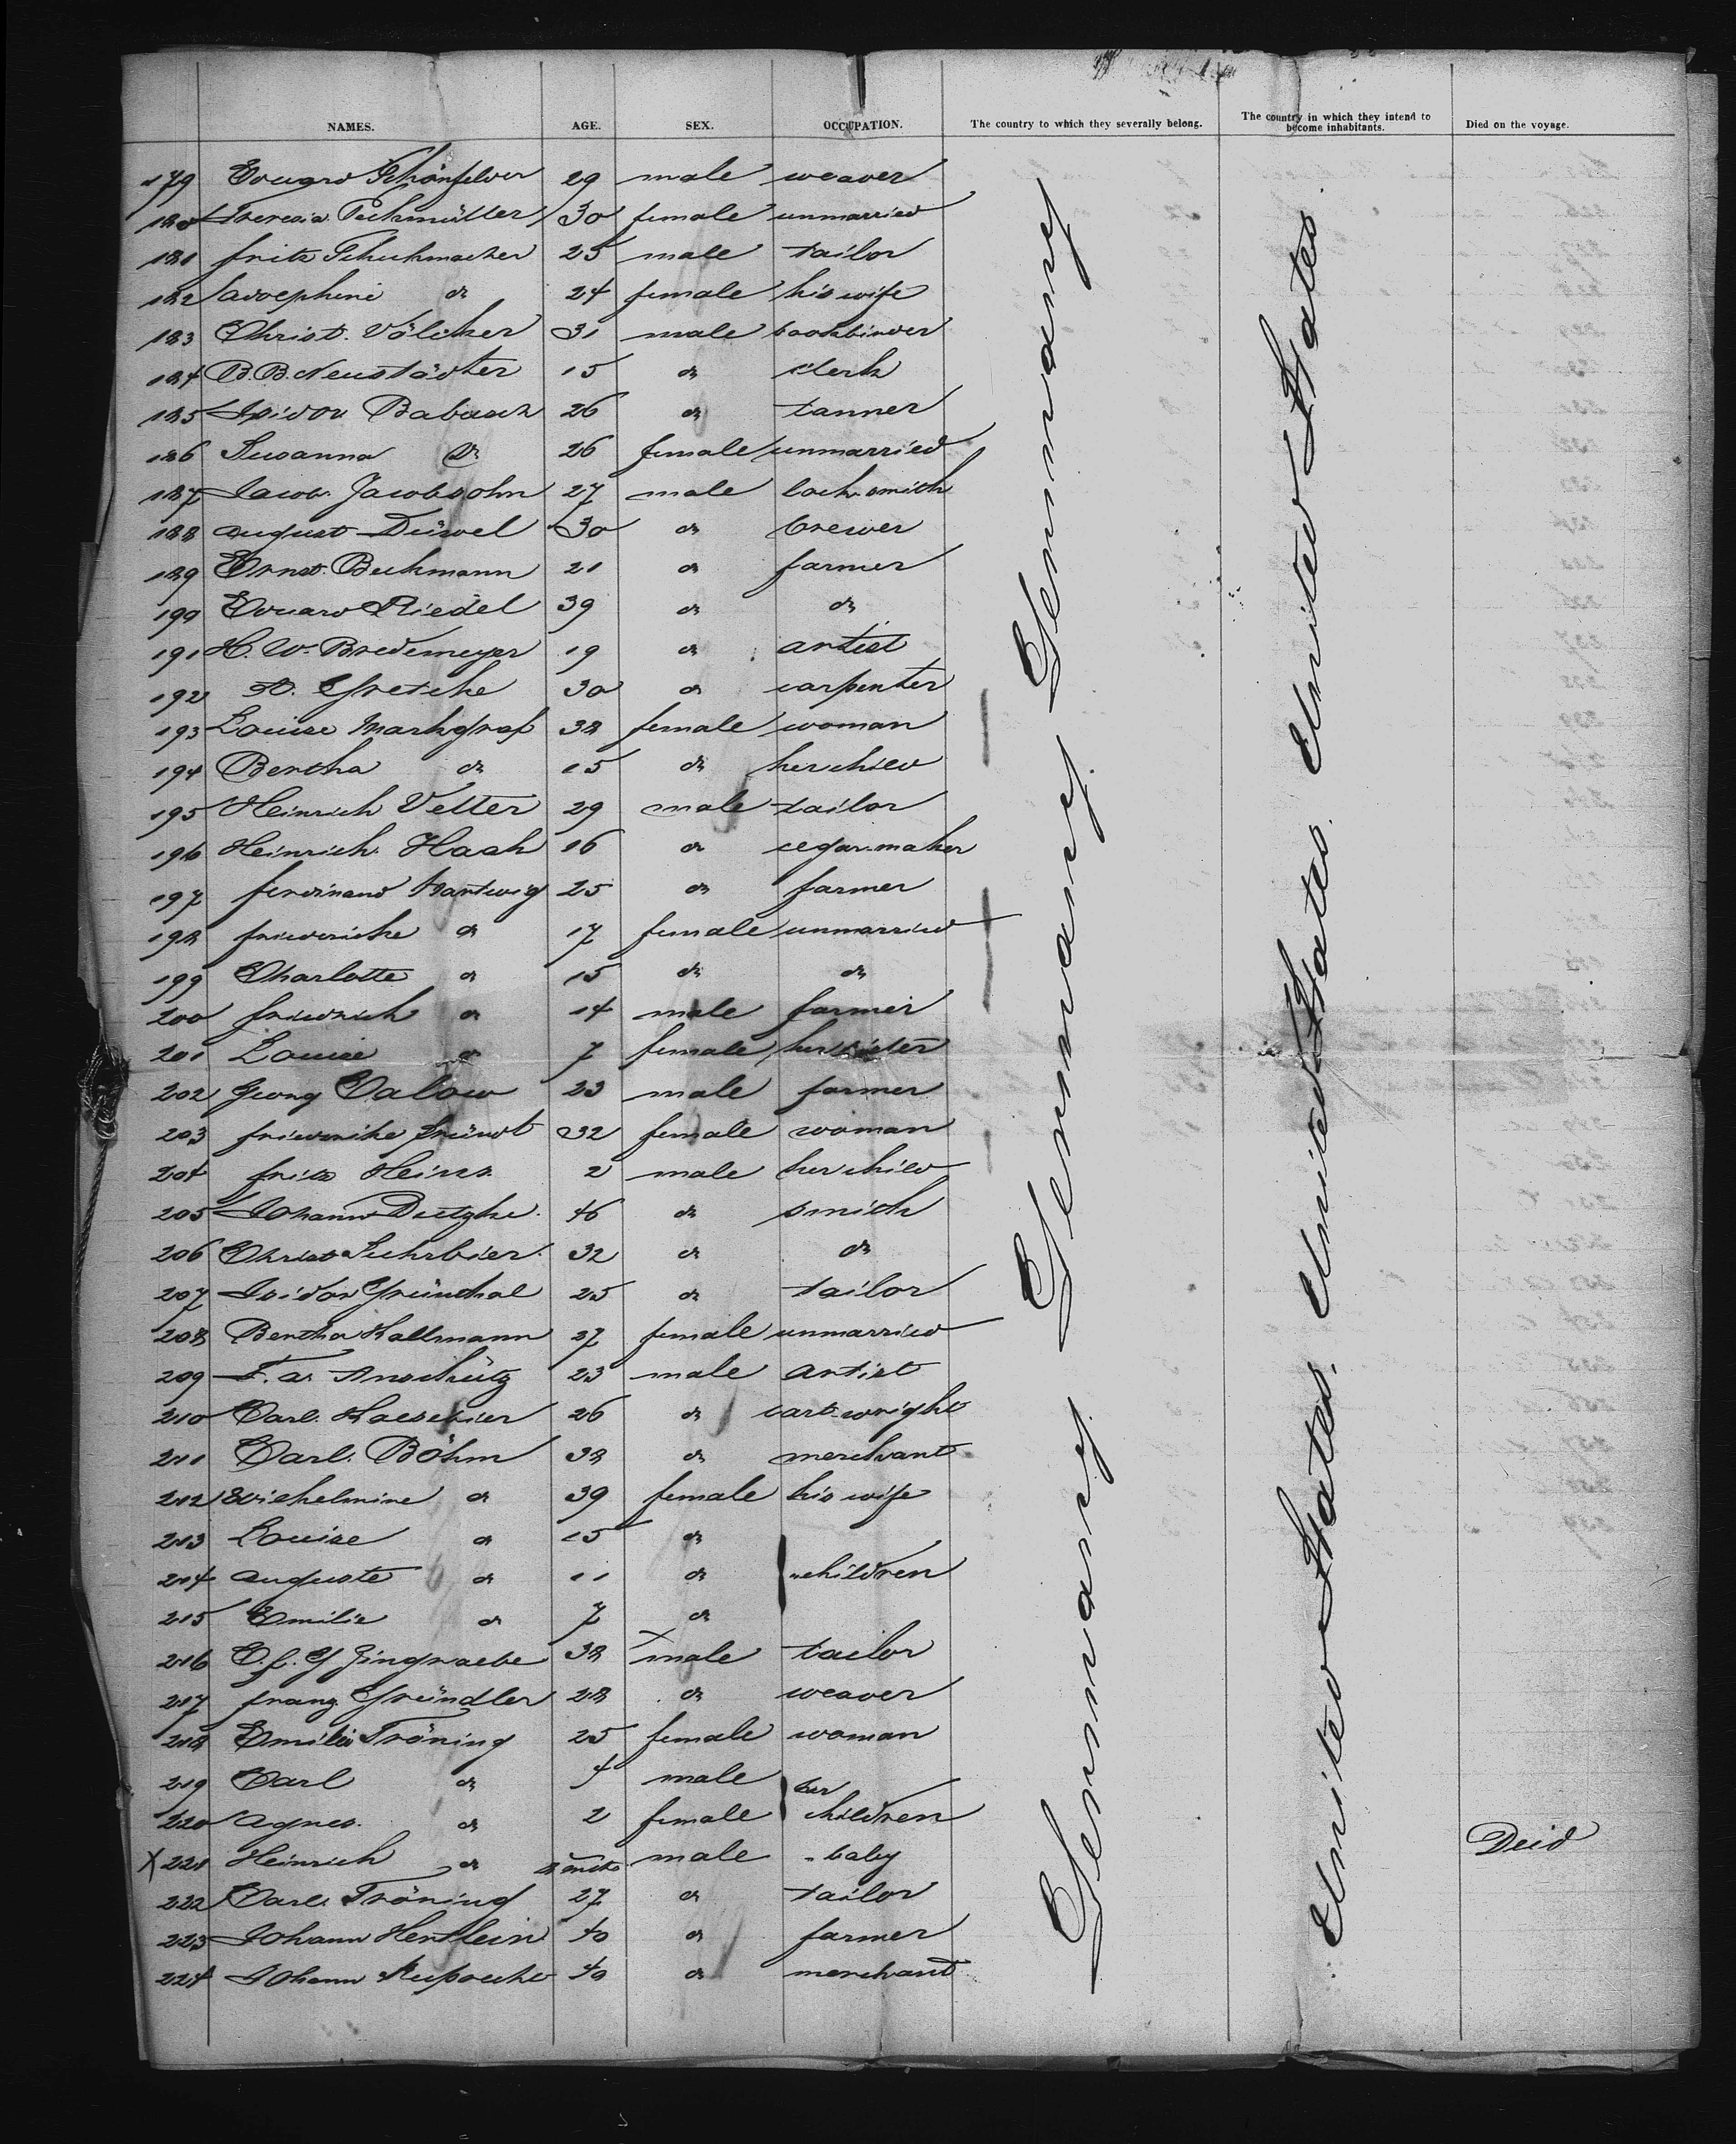 NAMES. AGE. SEX. OCCUPATION. The country to which they severally belong. The country in which they intend to become inhabitants. Died on the voyage.
179 Eduard Schönfelder 29 male weaver
180 Theresia Pechmüller 30 female unmarried
181 Fritz Schuhmacher 25 male tailor
182 Adolphine do 24 female his wife
183 Christ. Völcker 31 male bookbinder
184 B. B. Neustädter 15 do clerk
185 Isidor Babasch 26 do tanner
186 Susanna do 26 female unmarried
187 Jacob Jacobsohn 27 male lock smith
188 August Düwel 30 do brewer
189 Ernst Beckmann 21 do farmer
190 Eduard Riedel 39 do do
191 H. W. Bredemeyer 19 do artist
192 Gretche 30 do carpenter
193 Louise Markgraf 38 female woman
194 Bertha do 15 do her child
195 Heinrich Vetter 29 male tailor
196 Heinrich Haak 16 do cegar-maker
197 Ferdinand Hartwig 25 do farmer
198 Friederike do 17 female unmarried
199 Charlotte do 15 do do
200 Friedrich do 14 male farmer
201 Louise do 7 female her sister
202 Georg Calow 23 male farmer
203 Friederike Fründt 32 female woman
204 Fritz Heinr. 2 male her child
205 Johann Dietzke 46 do smith
206 Christ Suhrbier 32 do do
207 Isidor Grünthal 25 do tailor
208 Bertha Kallmann 27 female unmarried
209 F. A. Anschütz 23 male artist
210 Carl Haeseler 26 do cart-wright
211 Carl Böhm 38 do merchant
212 Wilhelmine do 39 female his wife
213 Louise do 15 do
214 Auguste do 11 do children
215 Emilie do 7 do
216 C. F. G. Zingraebe 38 male tailor
217 Franz Gründler 28 do weaver
218 Emilie Tröning 25 female woman
219 Carl do 4 male
her
220 Agnes do 2 female children
X 221 Heinrich do male baby Deid
222 Carl Tröning 27 do tailor
223 Johann Hertlein 40 do farmer
224 Johann 40 do merchant
Germany Germany Germany Germany
United States United States United States United States